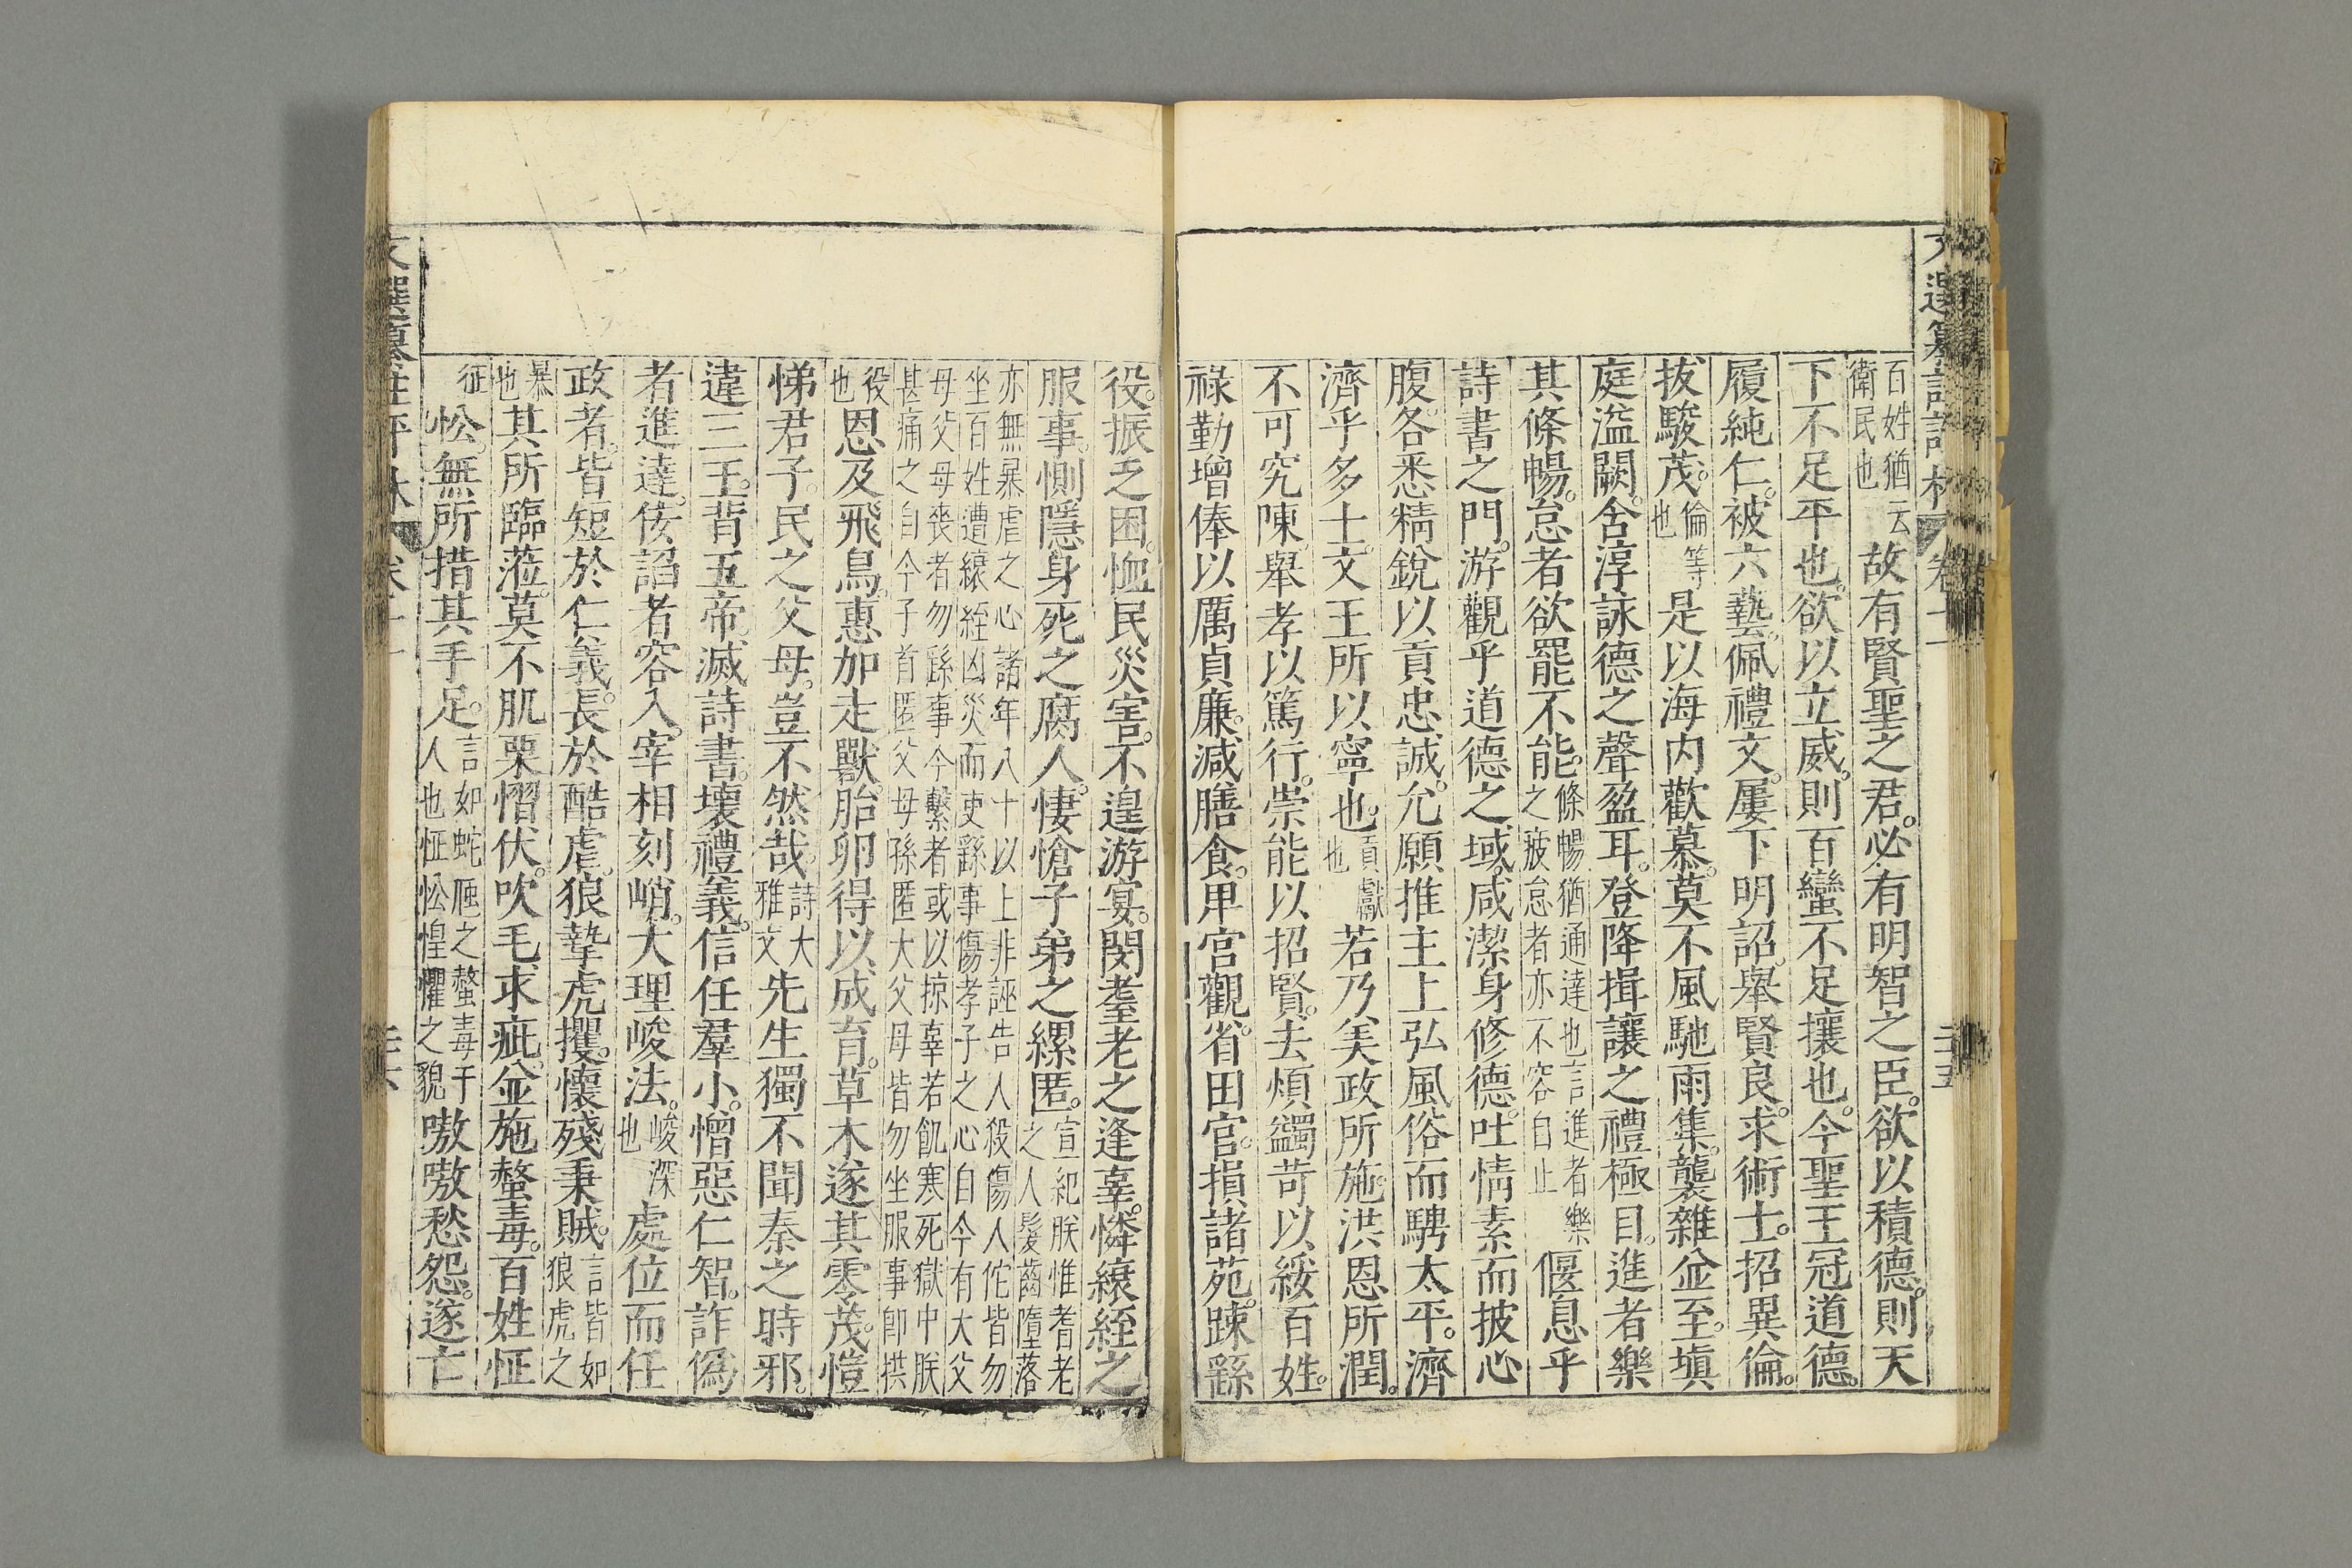 百姓猶云
衛民也
故有賢聖之君。必有明智之臣。欲以積德。則天
下不足平也。欲以立威。則百蠻不足攘也。今聖王冠道德。
履純仁。被六藝。佩禮文。屢下明詔。舉賢良。求術士。招異倫。
拔駿茂。
倫等
也
是以海内歡慕。莫不風馳雨集。襲雜並至。塡
庭溢闕。含淳詠德之聲盈耳。登降揖讓之禮極目。進者樂
其條暢。怠者欲罷不能。
條暢猶通達也言進者樂
之疲怠者亦不容自止
偃息乎
詩書之門。游觀乎道德之域。咸潔身修德。吐情素而披心
腹。各悉精銳以貢忠誠。允願推主上弘風俗而騁太平。濟
濟乎多士。文王所以寧也。
貢獻
也
若乃美政所施。洪恩所潤。
不可究陳。舉孝以篤行。崇能以招賢。去煩蠲苛以綏百姓。
祿勤增俸以厲貞廉。減膳食。卑宮觀。省田官。損諸苑。踈繇
役。振乏困。恤民災害。不遑游宴。閔耋老之逢辜。憐縗絰之
服事。惻隱身死之腐人。悽愴子弟之縲匿。
宣紀朕惟耆老
之人髮齒墮落
亦無暴虐之心諸年八十以上非誣告人殺傷人佗皆勿
坐百姓遭縗絰凶災而吏繇事傷孝子之心自今有大父
母父母喪者勿繇事今繫者或以掠辜若飢寒死獄中朕
甚痛之自今子首匿父母孫匿大父母皆勿坐服事卽供
役
也
恩及飛鳥。惠加走獸。胎卵得以成育。草木遂其零茂。愷
悌君子。民之父母。豈不然哉。
詩大
雅文
先生獨不聞秦之時邪。
違三王。背五帝。滅詩書。壞禮義。信任羣小。憎惡仁智。詐偽
者進達。佞諂者容入。宰相刻峭。大理峻法。
峻深
也
處位而任
政者。皆短於仁義。長於酷虐。狼摯虎攫。懷殘秉賊。
言皆如
狼虎之
暴
也
其所臨蒞。莫不肌栗慴伏。吹毛求疵。並施螫毒。百姓怔
征
忪。無所措其手足。
言如蛇虺之螫毒于
人也怔忪惶懼之貌
嗷嗷愁怨。遂亡